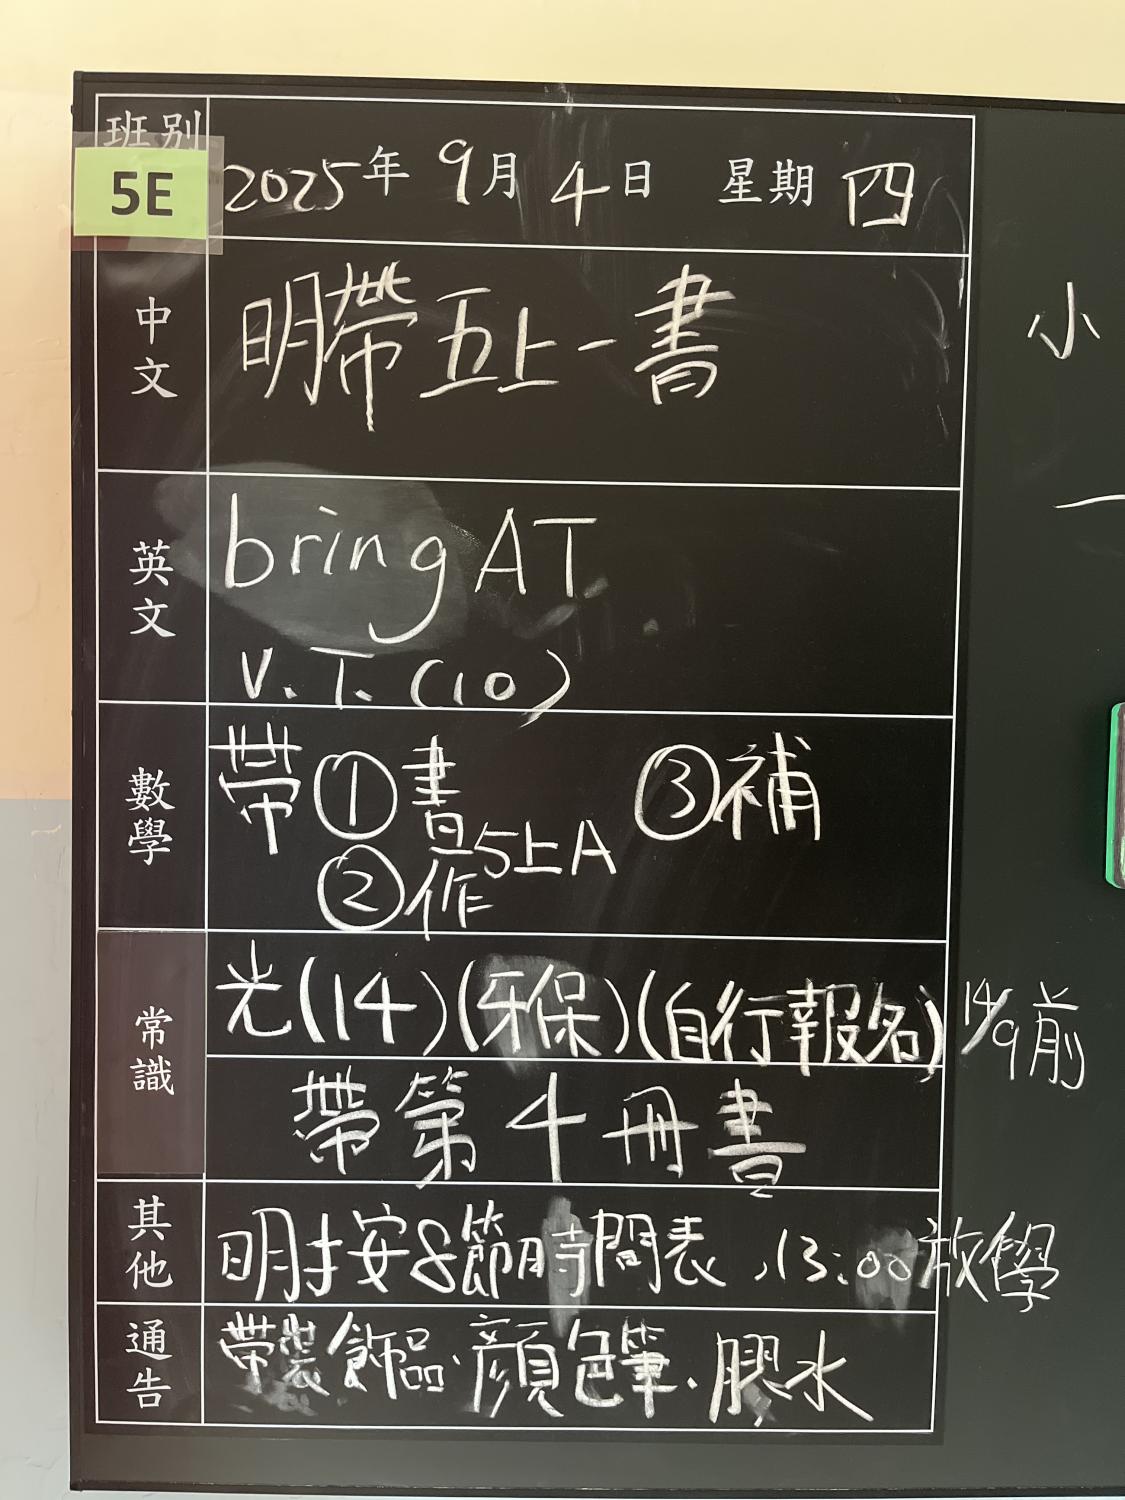 班別
5E
2025年 9月 4日 星期 四
中文
明帶五上一書
小
一
英文
bring AT
V.T. (10)
數學
帶①書 ③補
5上A
②作
常識
光(14)(牙保)(自行報名) 14/9前
帶第4冊書
其他
明按8節時間表,13:00放學
通告
帶裝飾品.顏色筆.膠水